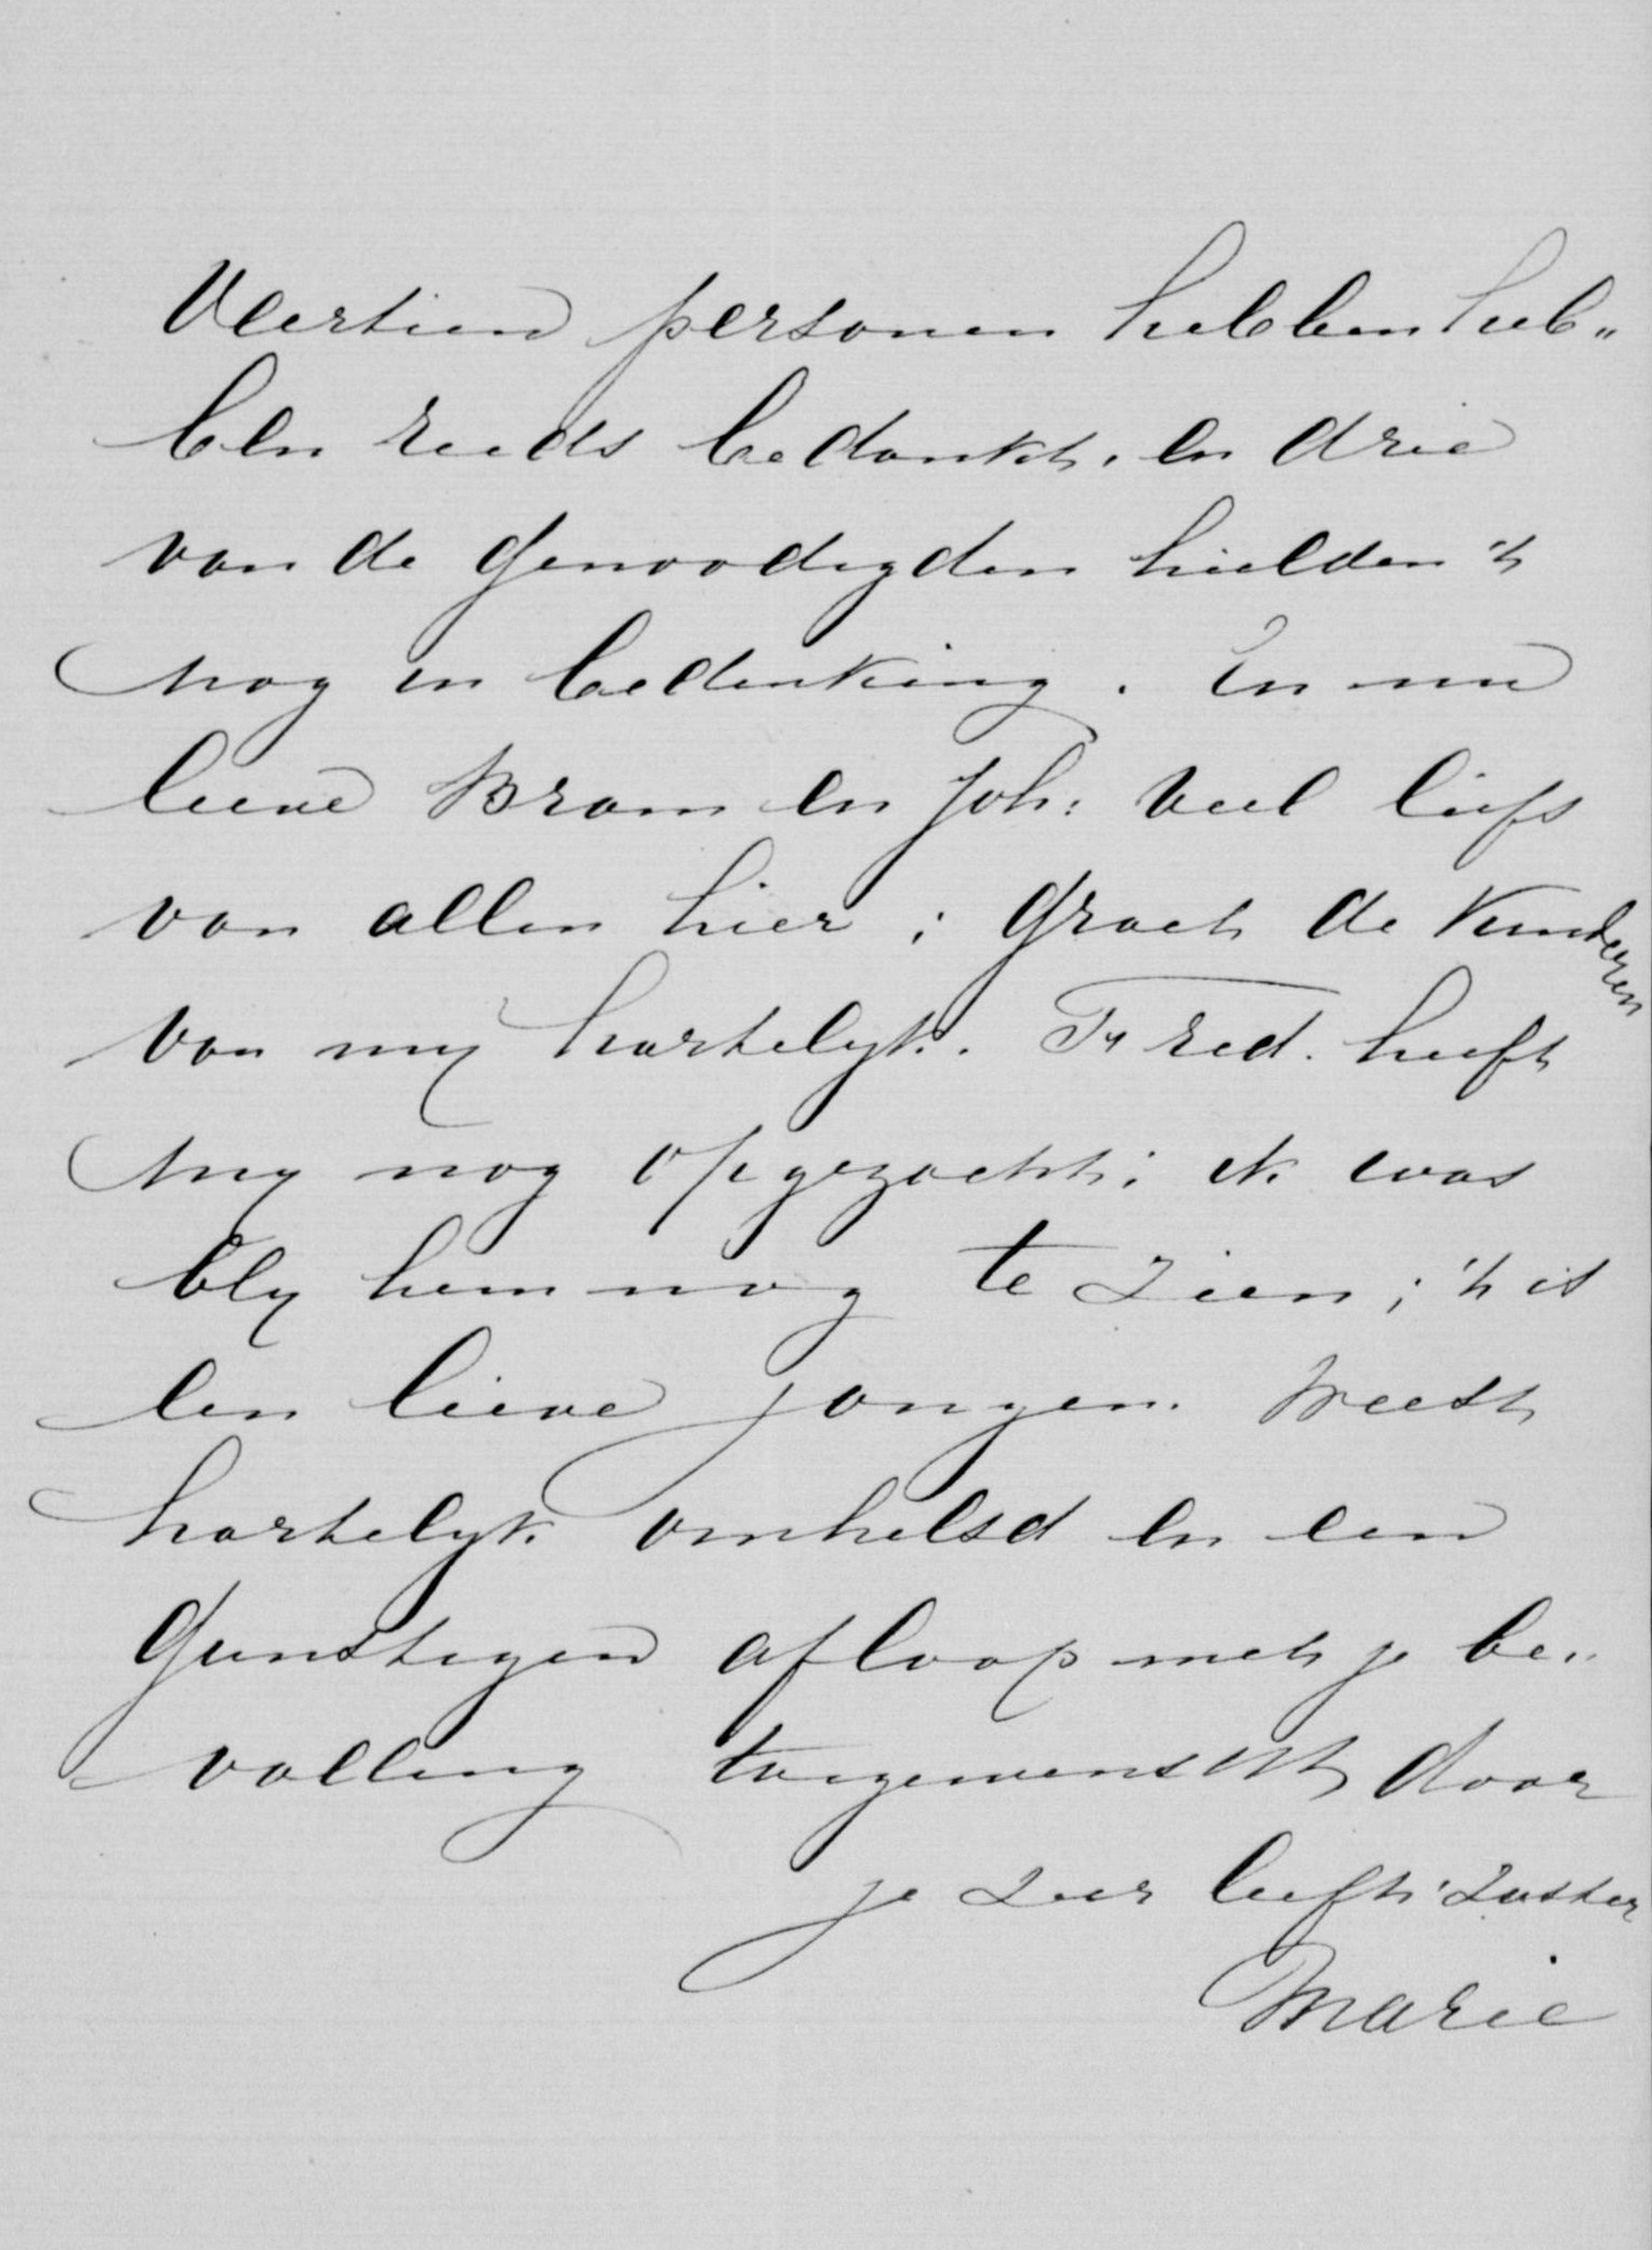 Veertien personen hebben heb„
ben reeds bedankt, en drie
van de genoodigden hielden 't
nog in bedenking. En nu
lieve Bram en Joh: veel liefs
van allen hier; groet de kinderen
van my hartelyk. Fred. heeft
my nog opgezocht; ik was
bly hem nog te zien; 't is
een lieve jongen. Weest
hartelyk omhelsd en een
gunstigen afloop met je be„
valling toegewenscht door
je zeer liefh: zuster
Marie